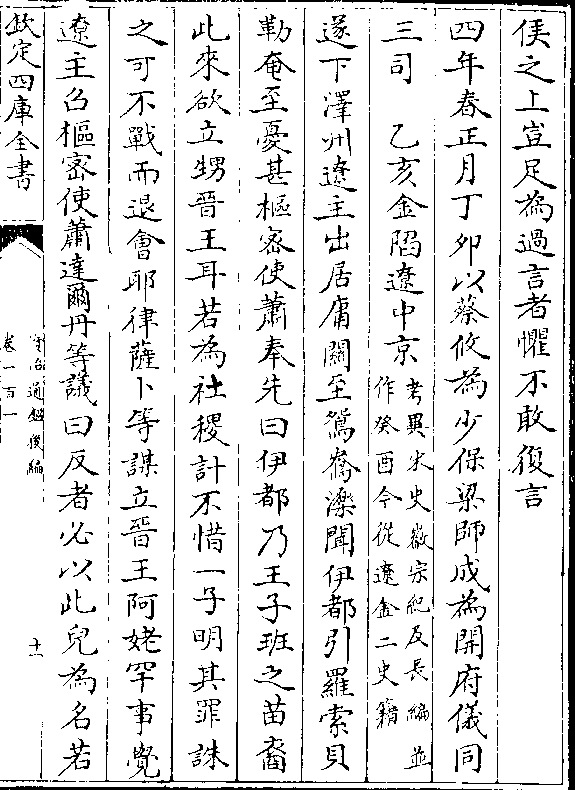 侯之上豈足為過言者懼不敢復言
四年春正月丁卯以蔡攸為少保梁師成為開府儀同
三司　乙亥金陷遼中京考異宋史徽宗紀及長編並
作癸酉今從遼金二史籍
遂下澤州遼主出居庸關至鴛鴦濼聞伊都引羅索貝
勒奄至憂甚樞密使蕭奉先曰伊都乃王子班之苗裔
此來欲立甥晉王耳若為社稷計不惜一子明其罪誅
之可不戰而退會耶律薩卜等謀立晉王阿姥罕事覺
遼主召樞密使蕭達爾丹等議曰反者必以此兒為名若
欽定四庫全書
資治通鑑後編
卷一百一
十一